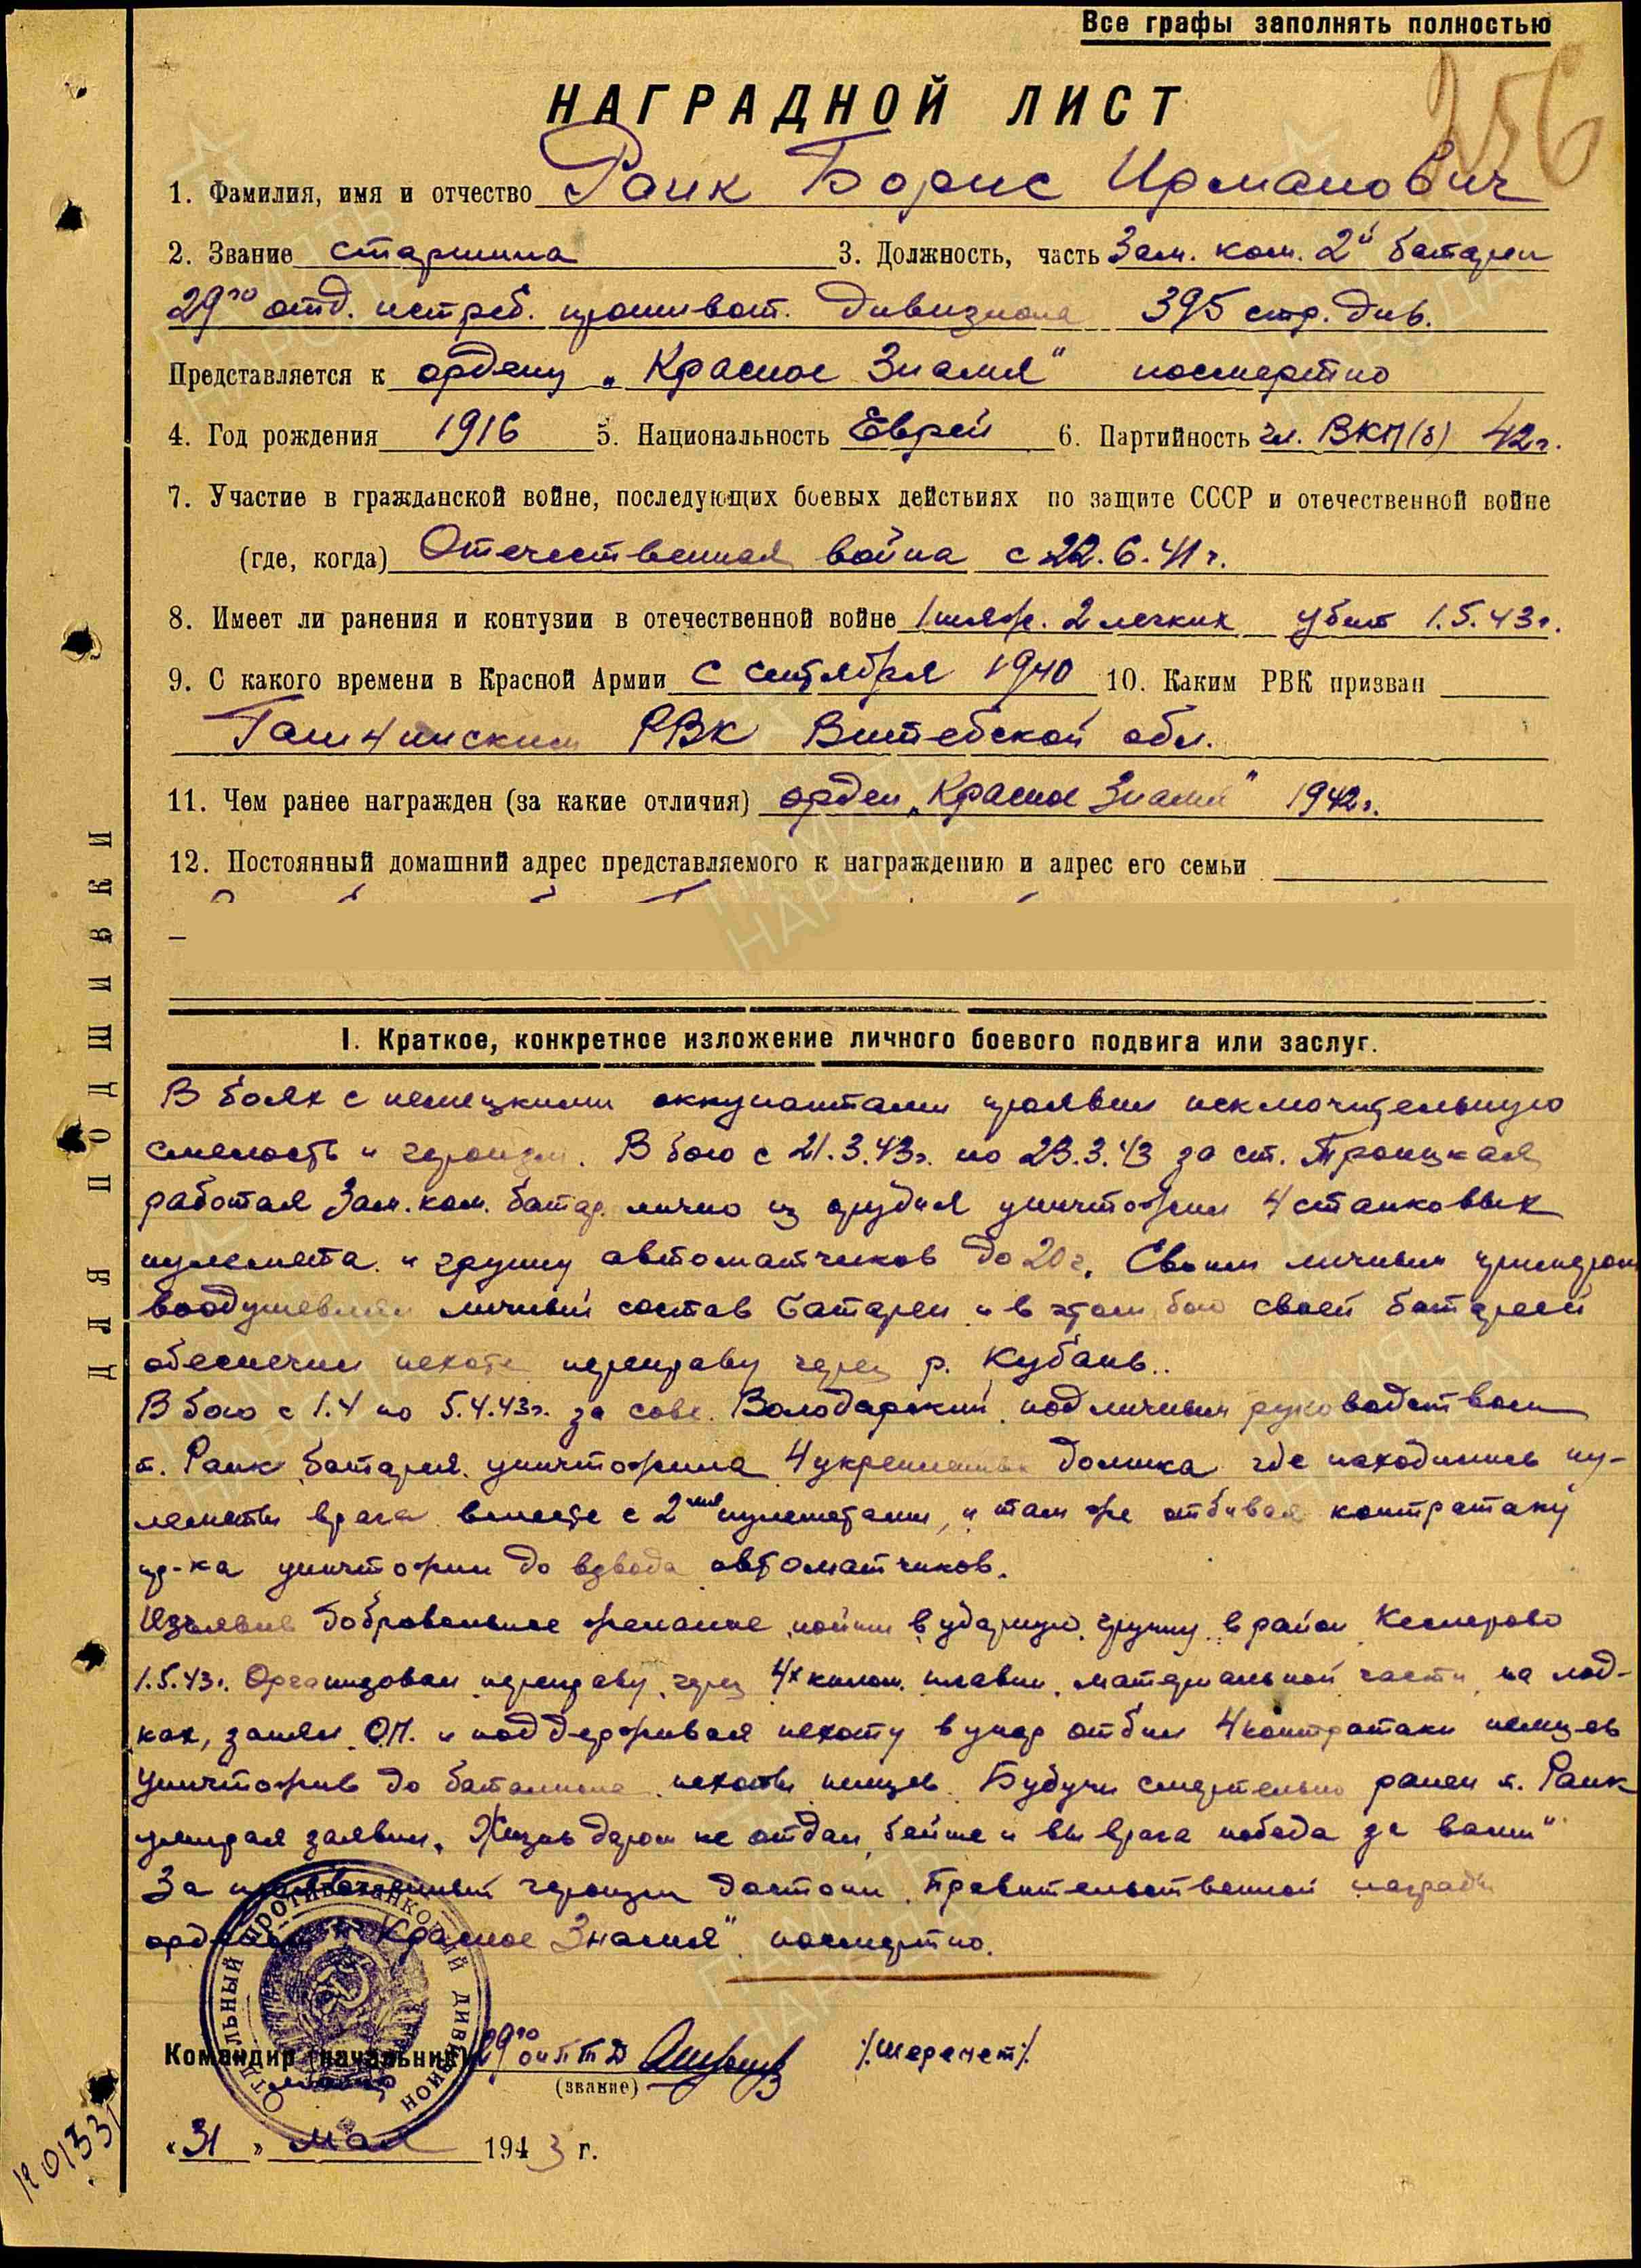 Все графы заполнять полностью
256
НАГРАДНОЙ ЛИСТ
1. Фамилия, имя и отчество Раик Борис Ирманович
2. Звание старшина 3. Должность, часть Зам. ком. 2й батареи
29го отд. истреб. противот. дивизиона 395 стр. див.
Представляется к ордену „Красное Знамя" посмертно
4. Год рождения 1916 5. Национальность Еврей 6. Партийность чл. ВКП(б) 42г.
7. Участие в гражданской войне, последующих боевых действиях по защите СССР и отечественной войне
(где, когда) Отечественная война с 22.6.41г.
8. Имеет ли ранения и контузии в отечественной войне 1 тяж. 2 легких убит 1.5.43г.
9. С какого времени в Красной Армии С сентября 1940 10. Каким РВК призван
РВК Витебской обл.
11. Чем ранее награжден (за какие отличия) орден „Красное Знамя" 1942г.
12. Постоянный домашний адрес представляемого к награждению и адрес его семьи
I. Краткое, конкретное изложение личного боевого подвига или заслуг.
В боях с немецкими оккупантами проявил исключительную
смелость и героизм. В бою с 21.3.43г. по 23.3.43 за ст. Троицкая
работая Зам. ком. батар. лично из орудия уничтожил 4 станковых
пулемета и группу автоматчиков до 20ч. Своим личным примером
воодушевлял личный состав батареи и в этом бою своей батареей
обеспечил пехоте переправу через р. Кубань.
В бою с 1.4 по 5.4.43г. за совх. Володарский под личным руководством
т. Раик батарея уничтожила 4 укрепленных домика где находились пу-
леметы врага вместе с 2мя пулеметами, и там же отбивая контратаку
пр-ка уничтожил до взвода автоматчиков.
Изъявив добровольное желание пойти в ударную группу в район Кеслерово
1.5.43г. Организовал переправу через 4х килом. плавни материальной части на лод-
ках, занял О.П. и поддерживая пехоту в упор отбил 4 контратаки немцев
уничтожив до батальона пехоты немцев. Будучи смертельно ранен т. Раик
умирая заявил „Жизнь даром не отдал, бейте и вы врага победа за вами"
За проявленный героизм достоин Правительственной награды
орденом „Красное Знамя" посмертно.
Командир (начальник) 29го оиптд /Шеремет/
майор (звание)
«31» мая 1943 г.
ОТДЕЛЬНЫЙ ПРОТИВОТАНКОВЫЙ ДИВИЗИОН
ДЛЯ ПОДШИВКИ
ПАМЯТЬ НАРОДА